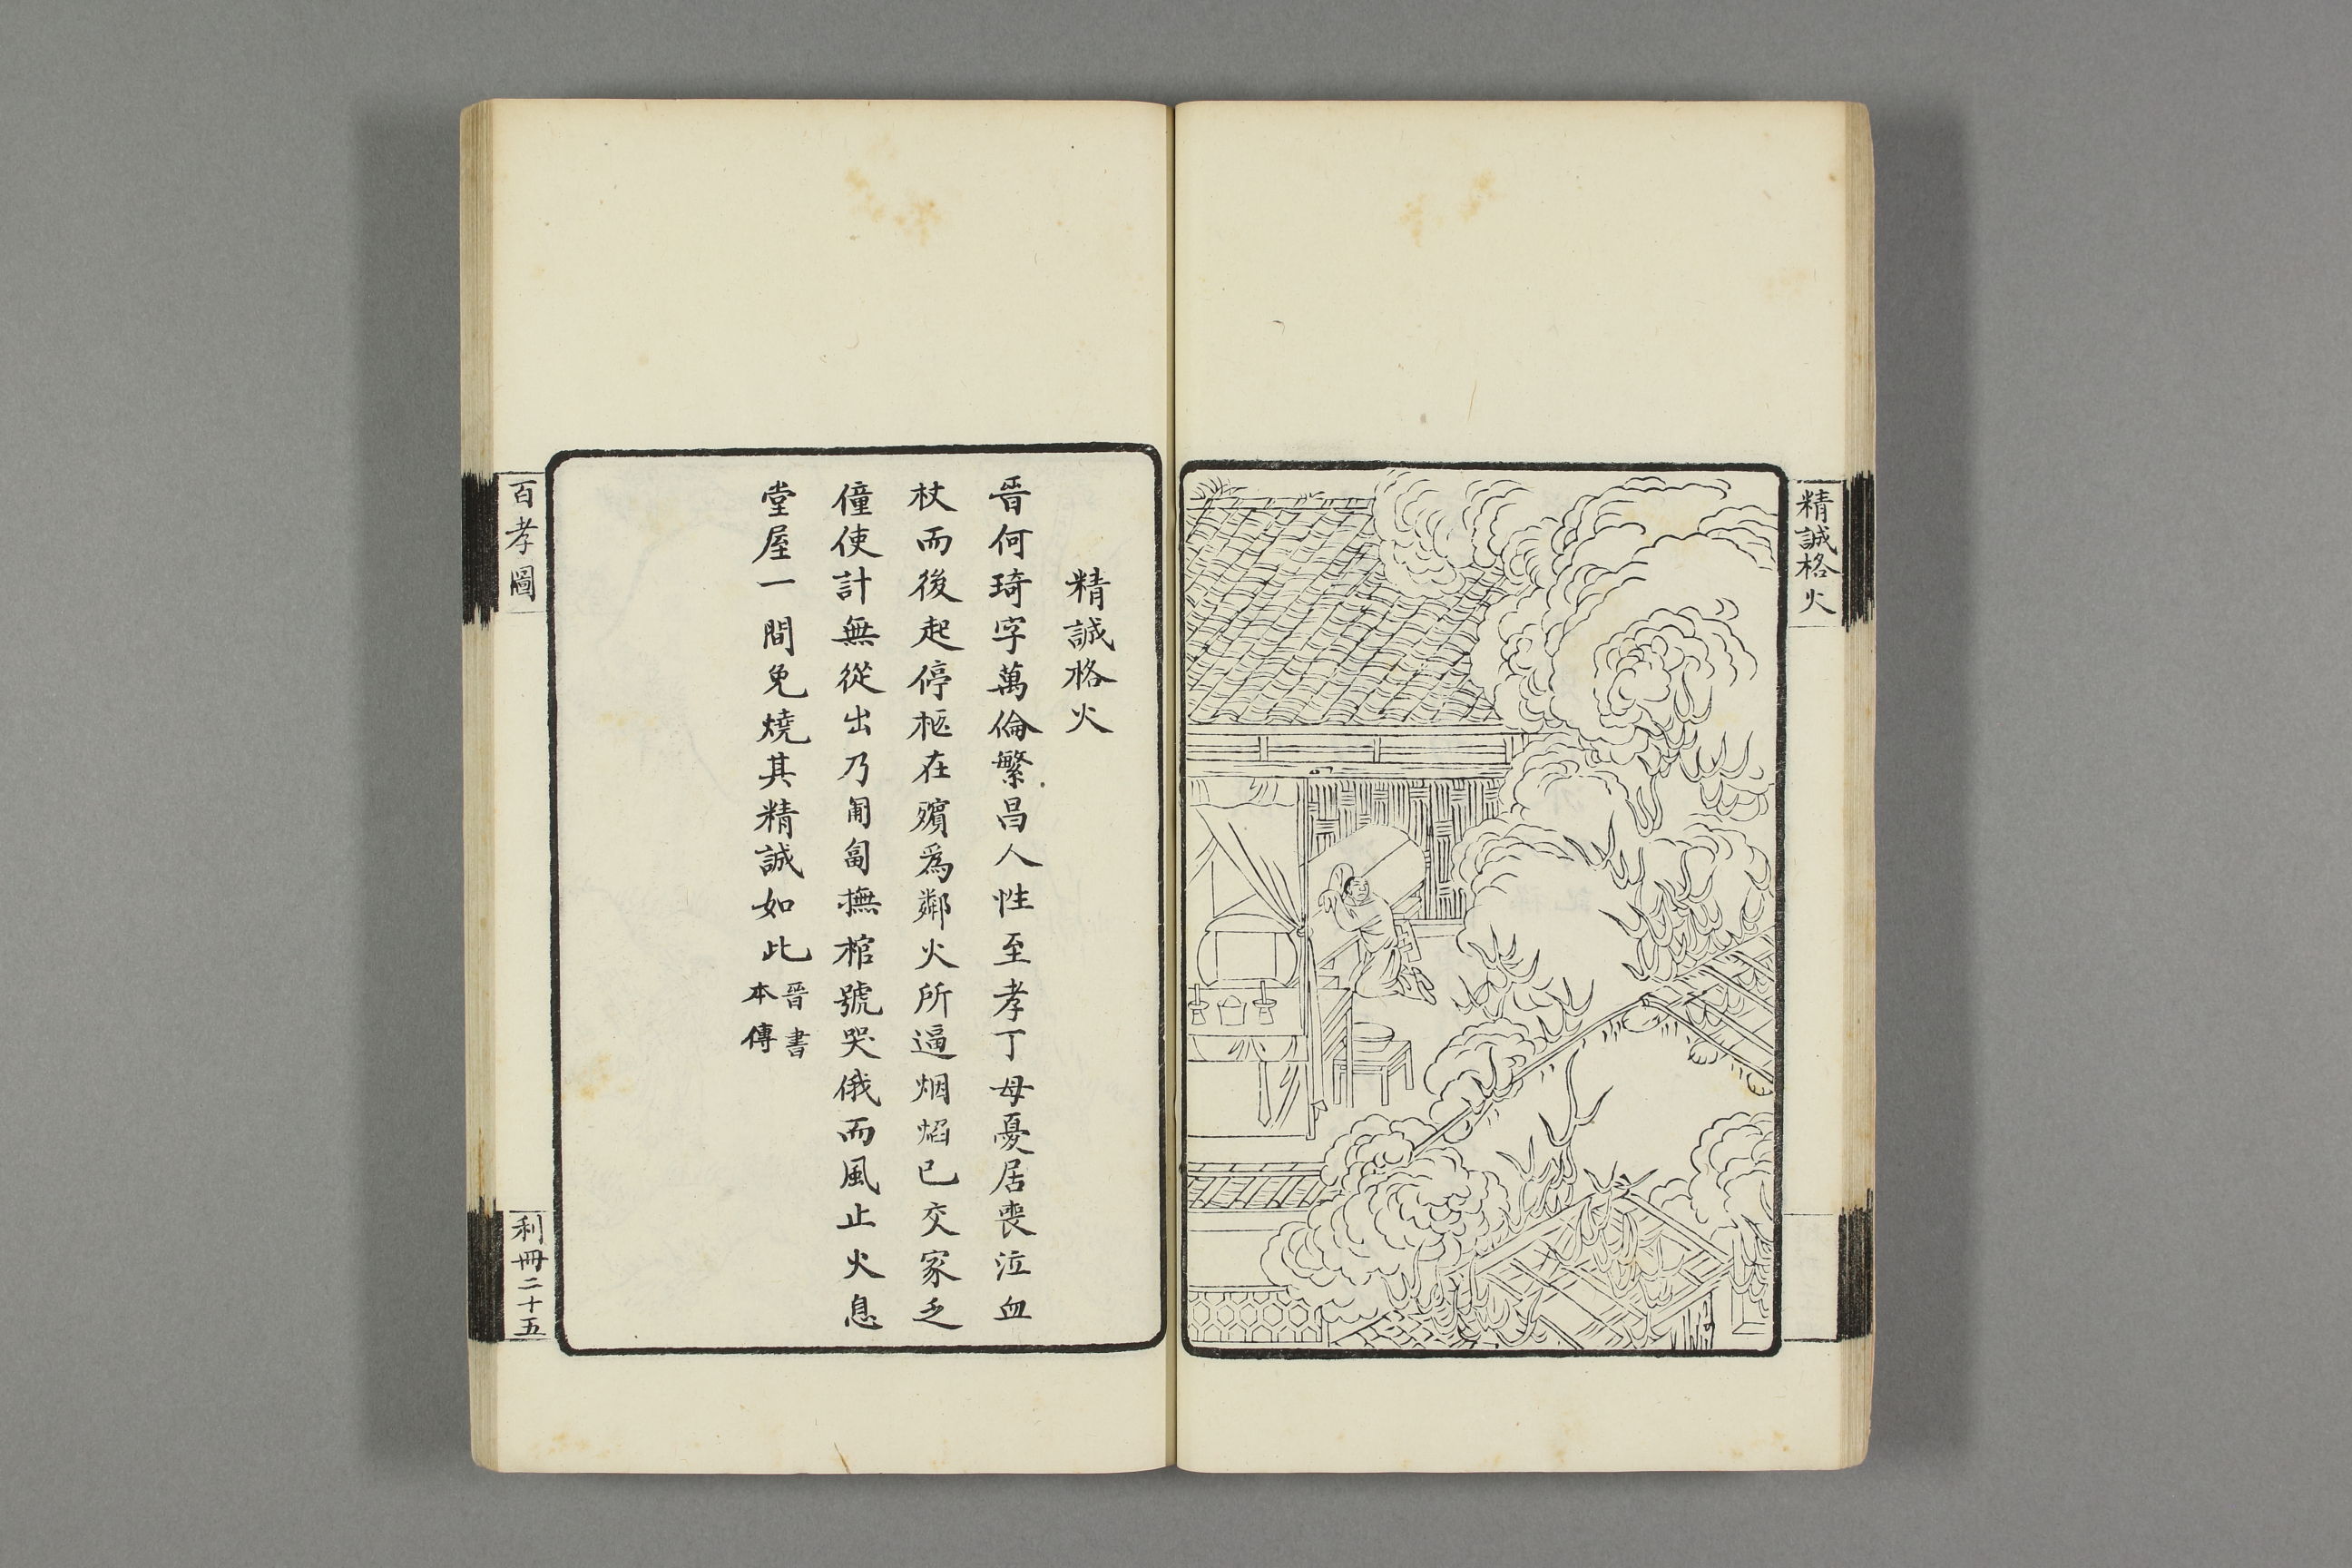 精誠格火
精誠格火
晉何琦字萬倫繁昌人性至孝丁母憂居喪泣血
杖而後起停柩在殯爲鄰火所逼烟焰已交家乏
僮使計無從出乃匍匐撫棺號哭俄而風止火息
堂屋一間免燒其精誠如此
晉書
本傳
百孝圖
利冊二十五